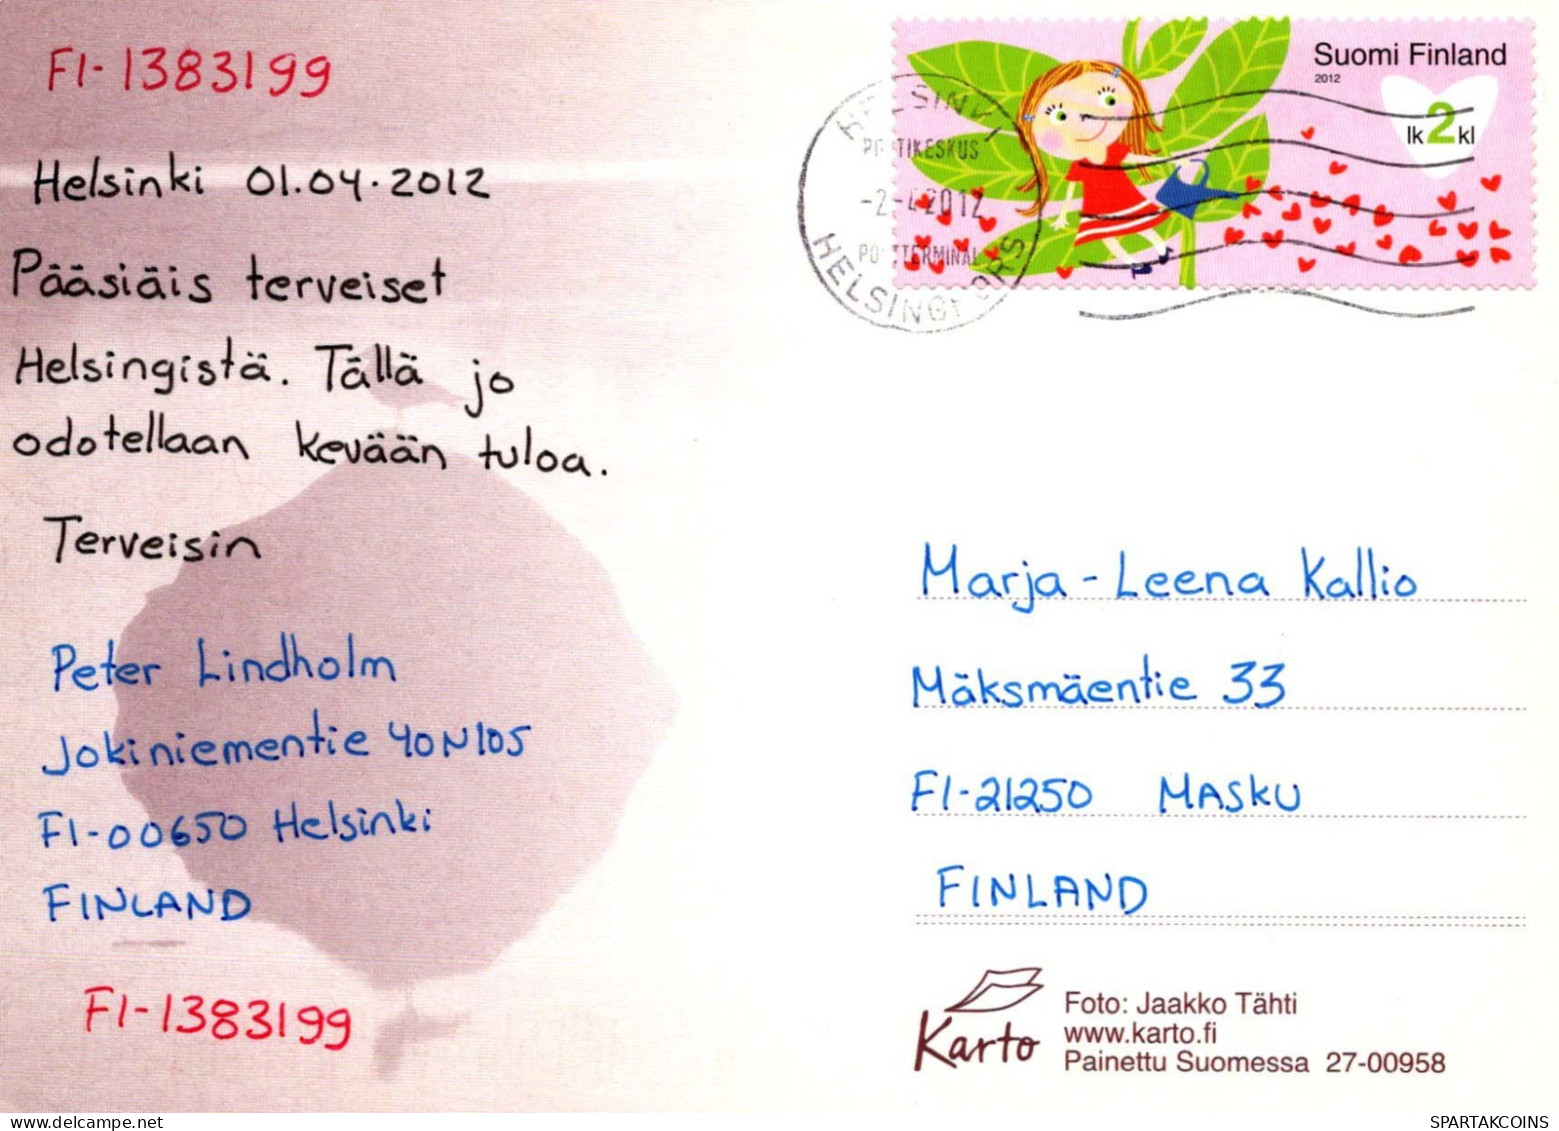 FI-1383199
Helsinki 01.04.2012
Pääsiäis terveiset
Helsingistä. Tällä jo
odotellaan kevään tuloa.
Terveisin
Peter Lindholm
Jokiniementie 40N105
FI-00650 Helsinki
FINLAND
FI-1383199
Suomi Finland
2012
lk2kl
HELSINKI
POSTIKESKUS
-2-4.2012
POSTTERMINAL
HELSINGFORS
Marja-Leena Kallio
Mäksmäentie 33
FI-21250 MASKU
FINLAND
Karto
Foto: Jaakko Tähti
www.karto.fi
Painettu Suomessa 27-00958
SPARTAKCOINS